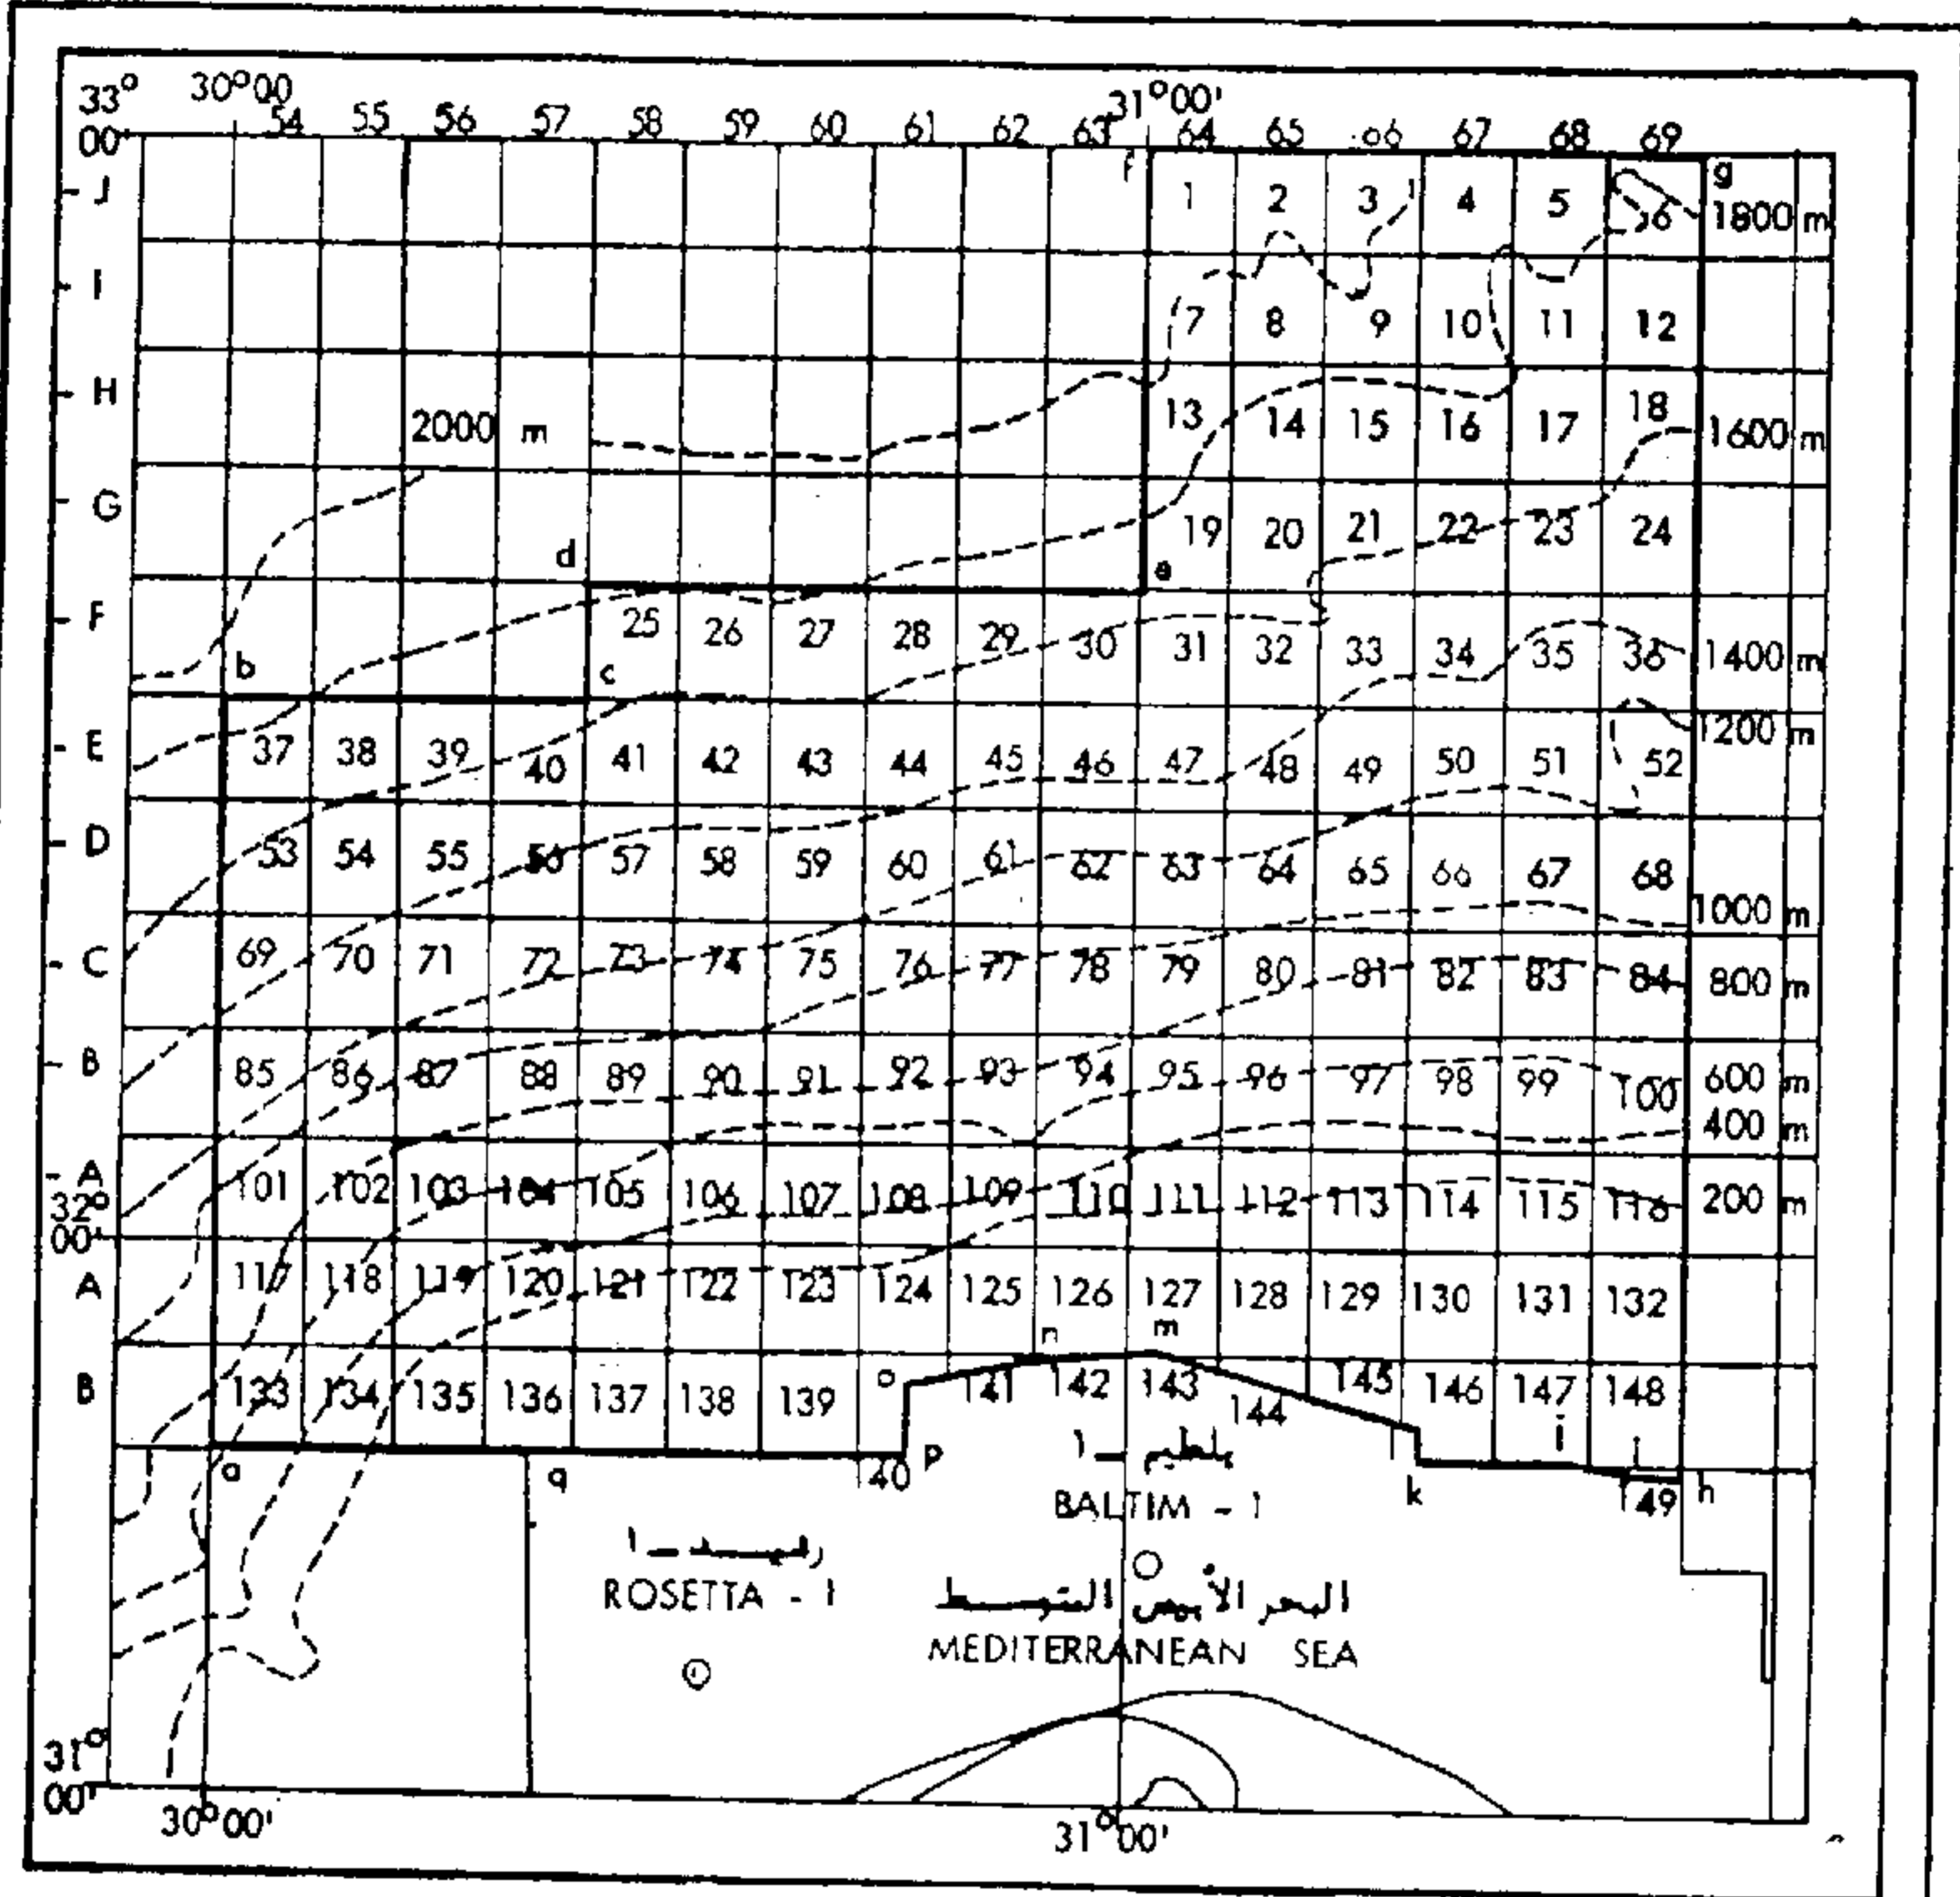 33° 30°00' 31°00'
54 55 56 57 58 59 60 61 62 63 64 65 66 67 68 69
00'
f g
J 1 2 3 4 5 6 1800 m
I 7 8 9 10 11 12
H 2000 m 13 14 15 16 17 18 1600 m
G 19 20 21 22 23 24
d e
F 25 26 27 28 29 30 31 32 33 34 35 36 1400 m
b c
1200 m
E 37 38 39 40 41 42 43 44 45 46 47 48 49 50 51 52
D 53 54 55 56 57 58 59 60 61 62 63 64 65 66 67 68
1000 m
C 69 70 71 72 73 74 75 76 77 78 79 80 81 82 83 84 800 m
B 85 86 87 88 89 90 91 92 93 94 95 96 97 98 99 100 600 m
400 m
A 101 102 103 104 105 106 107 108 109 110 111 112 113 114 115 116 200 m
32°
00'
A 117 118 119 120 121 122 123 124 125 126 127 128 129 130 131 132
n m
B 133 134 135 136 137 138 139 o 141 142 143 144 145 146 147 148
i j
a q 140 p k 149 h
بلطيم - ١
BALTIM - 1
رشيد - ١
ROSETTA - 1
البحر الأبيض المتوسط
MEDITERRANEAN SEA
31°
00'
30°00' 31°00'